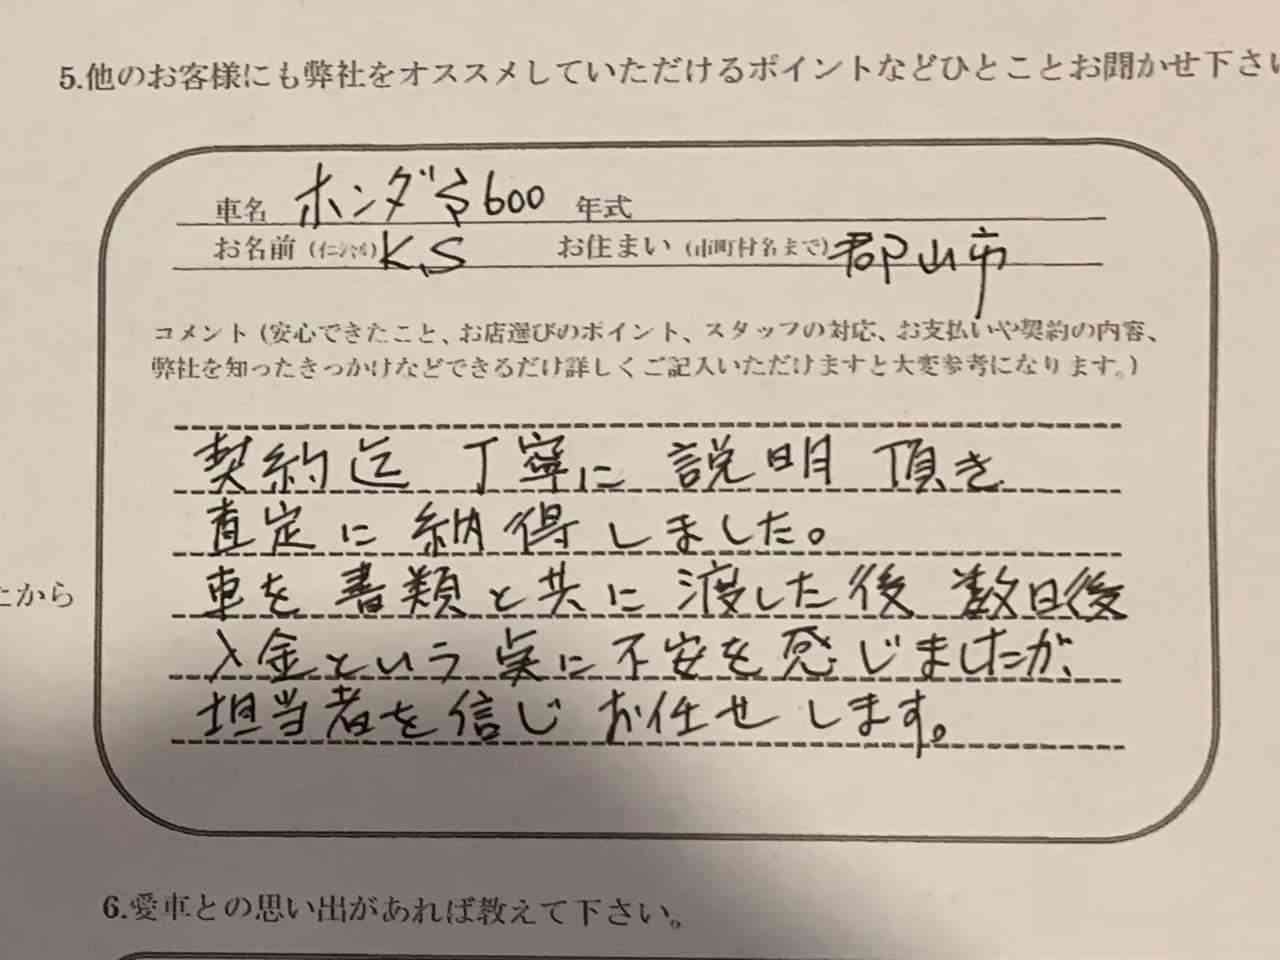 5.他のお客様にも弊社をオススメしていただけるポイントなどひとことお聞かせ下さい
車名 ホンダS600 年式
お名前(イニシャル)K.S お住まい(市町村名まで)郡山市
コメント(安心できたこと、お店選びのポイント、スタッフの対応、お支払いや契約の内容、
弊社を知ったきっかけなどできるだけ詳しくご記入いただけますと大変参考になります。)
契約迄 丁寧に 説明 頂き
査定に 納得しました。
車を 書類と共に 渡した後 数日後
入金という点に不安を感じましたが、
担当者を信じ お任せします。
たから
6.愛車との思い出があれば教えて下さい。